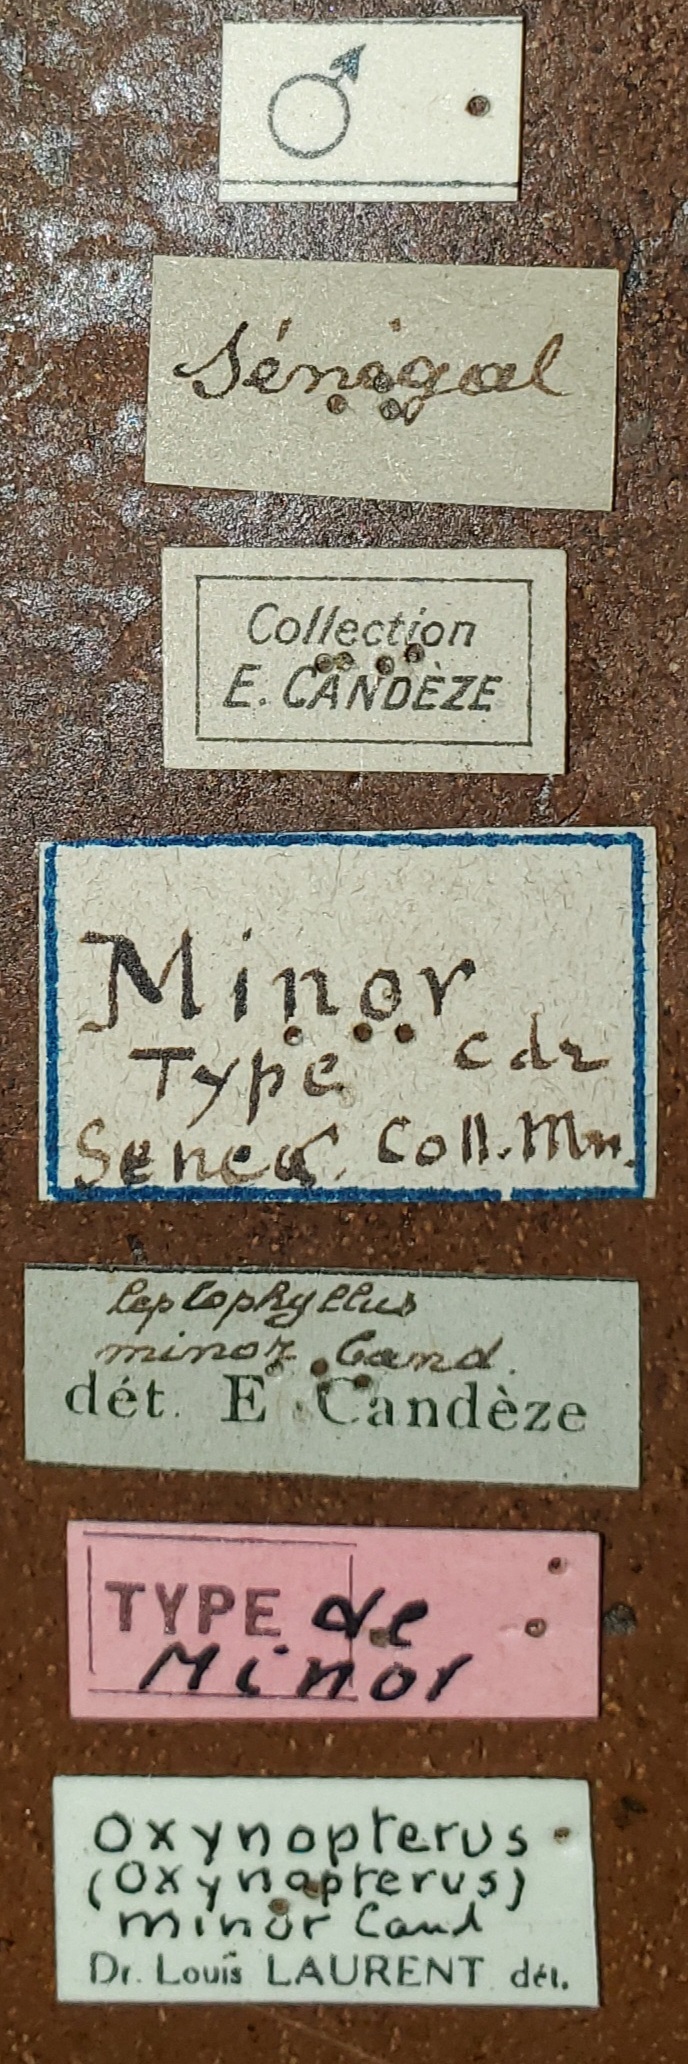 ♂
Sénégal
Collection
E. CANDÈZE
Minor
Type cdz
Seneg. Coll. Mn.
leptophyllus
minor Cand.
dét. E. Candèze
TYPE de
Minor
Oxynopterus
(Oxynopterus)
minor Cand
Dr. Louis LAURENT dét.